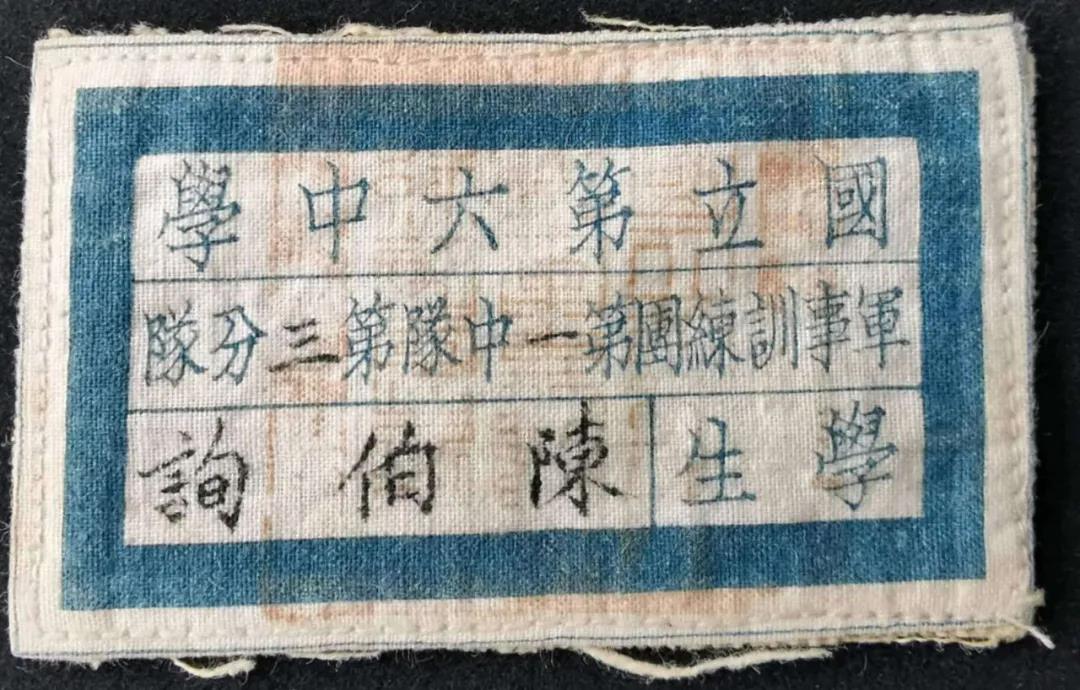 國立第六中學
軍事訓練團第一中隊第三分隊
學生 陳伯詢